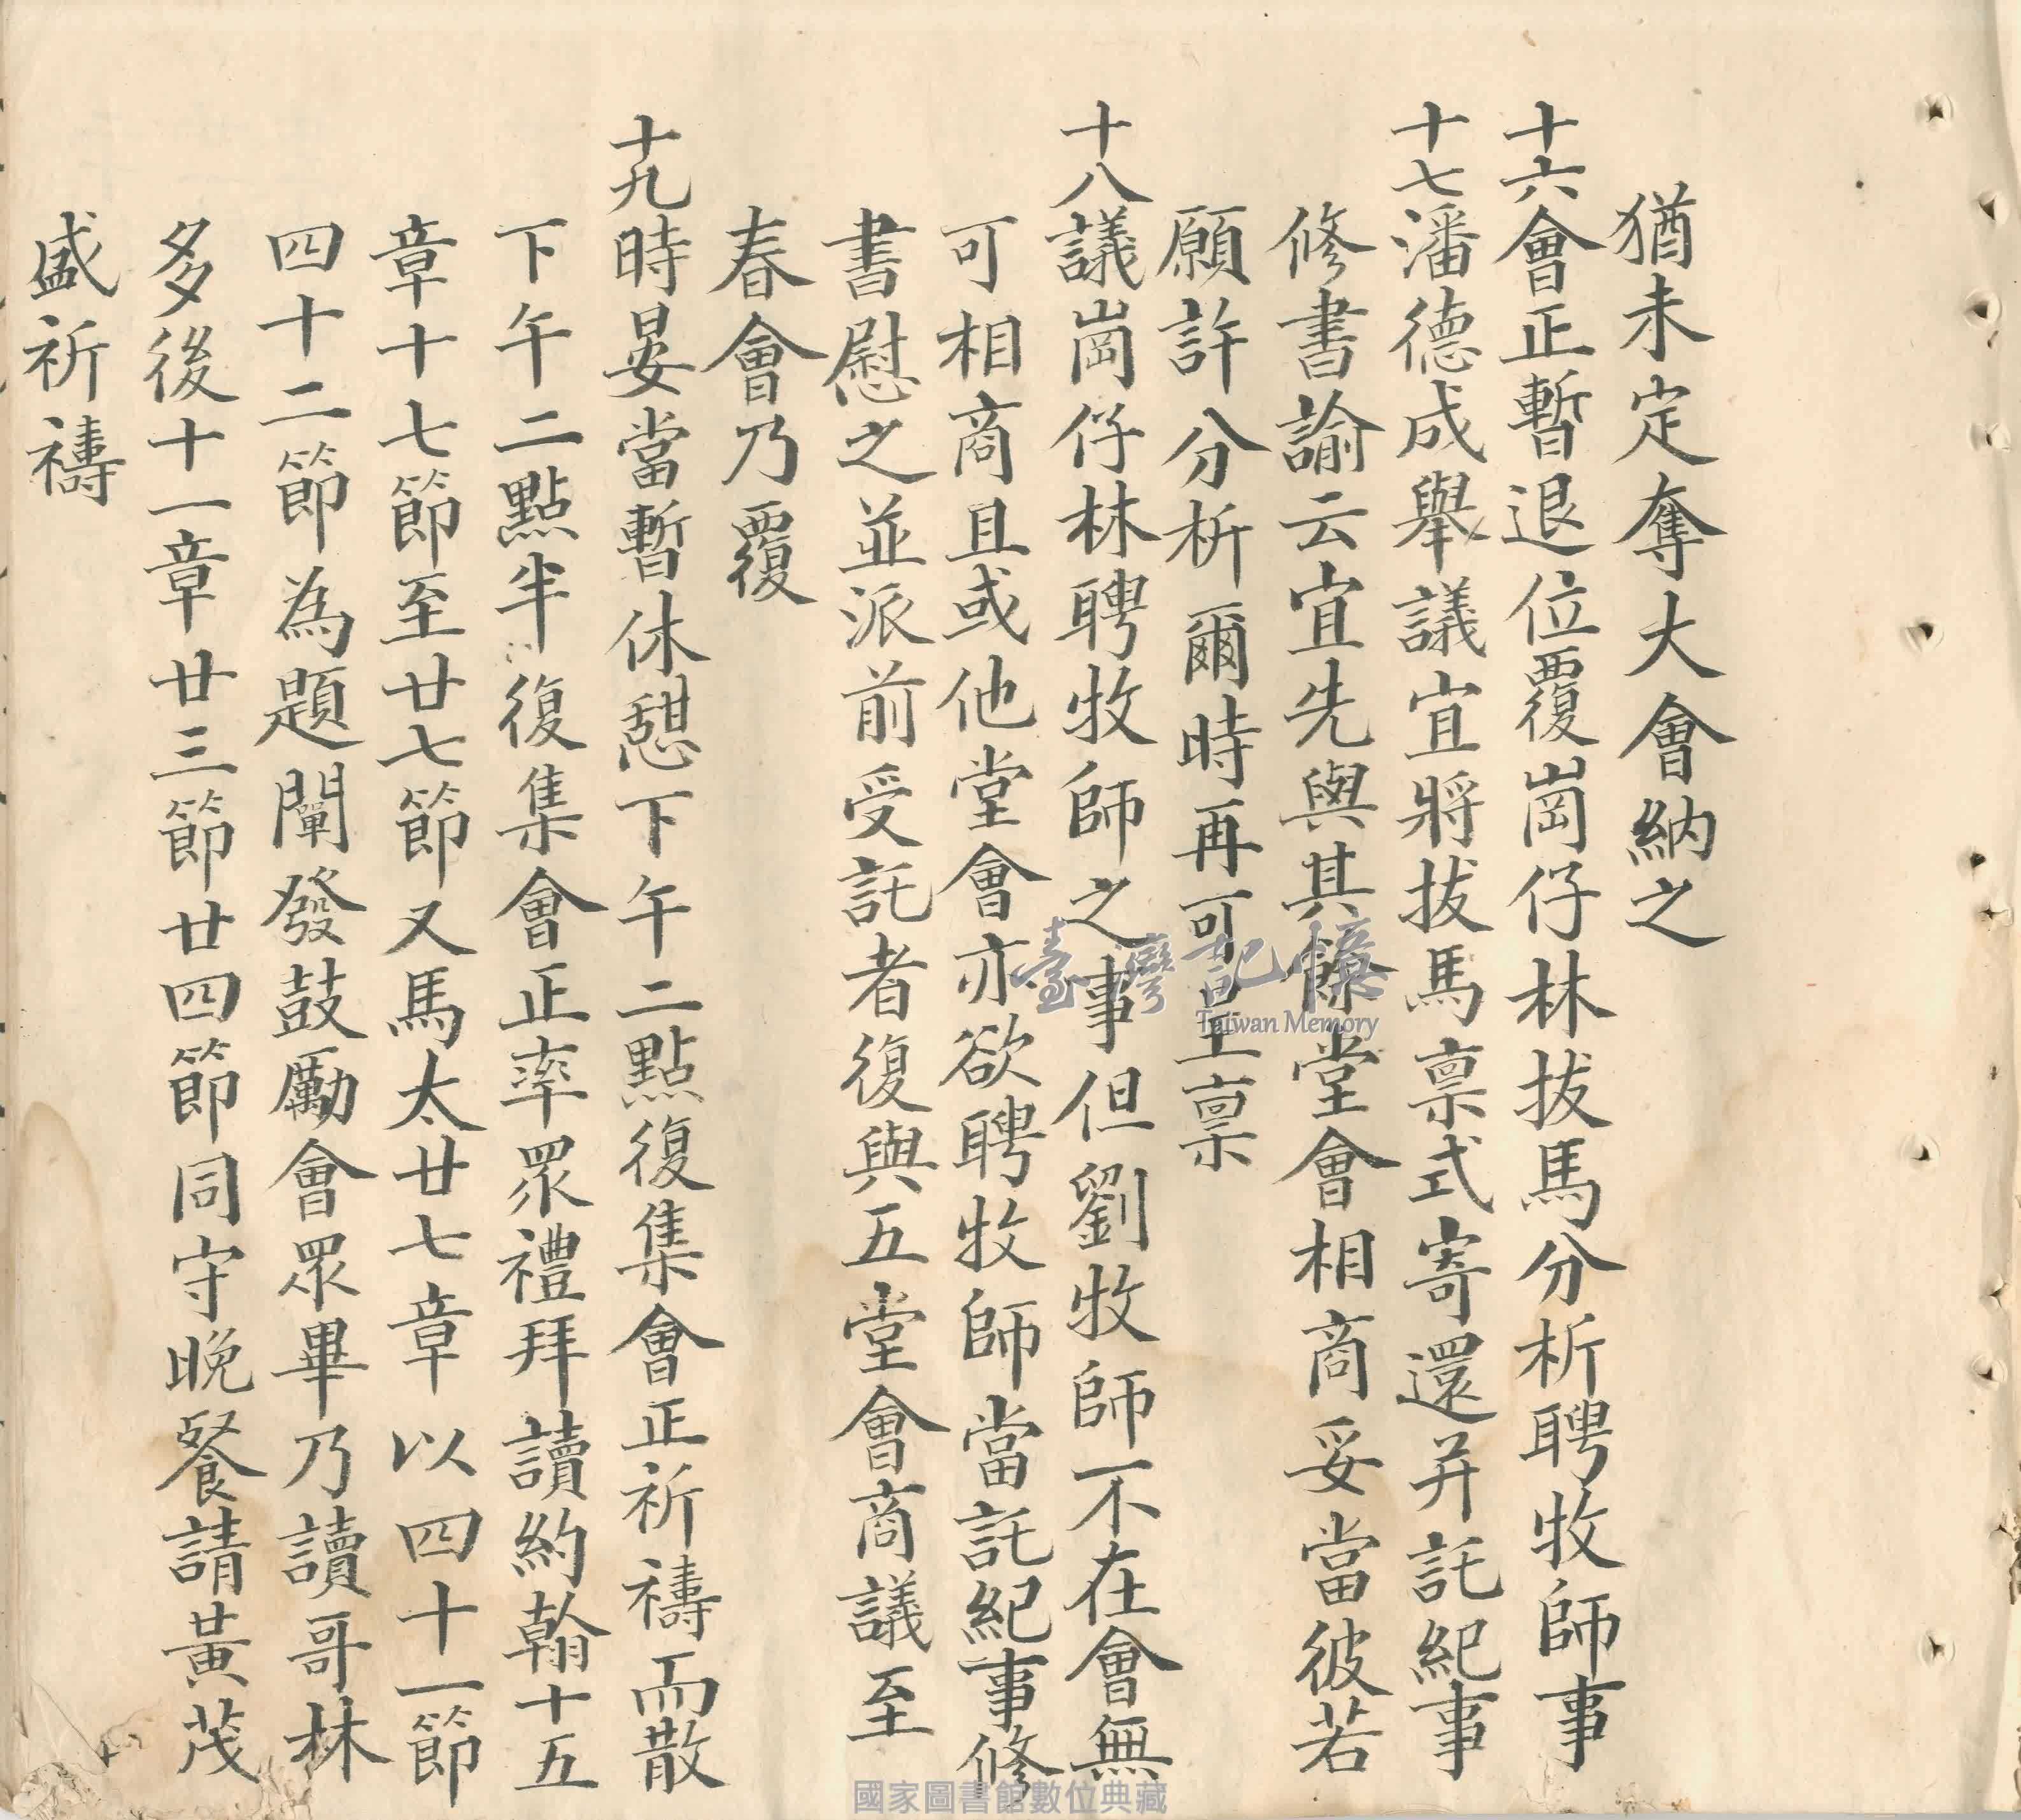 猶未定奪大會納之
十六會正暫退位覆崗仔林拔馬分析聘牧師事
十七潘德成舉議宜將拔馬禀式寄還并託紀事
修書諭云宜先與其餘堂會相商妥當彼若
願許分析爾時再可上禀
十八議崗仔林聘牧師之事但劉牧師不在會無
可相商且或他堂會亦欲聘牧師當託紀事修
書慰之並派前受託者復與五堂會商議至
春會乃覆
十九時晏當暫休憩下午二點復集會正祈禱而散
下午二點半復集會正率眾禮拜讀約翰十五
章十七節至廿七節又馬太廿七章以四十一節
四十二節為題闡發鼓勵會眾畢乃讀哥林
多後十一章廿三節廿四節同守晚餐請黃茂
盛祈禱
臺灣記憶
Taiwan Memory
國家圖書館數位典藏